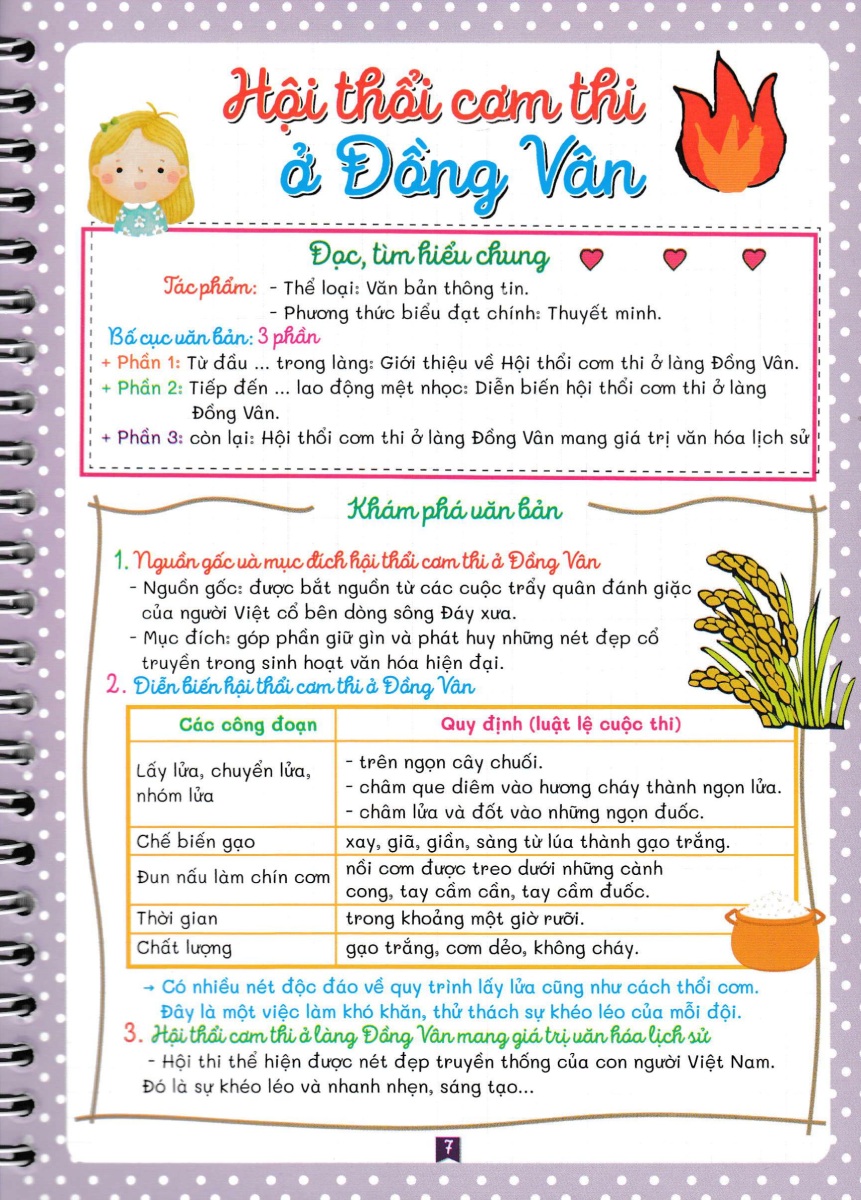 Hội thổi cơm thi
ở Đồng Vân
Đọc, tìm hiểu chung
Tác phẩm: - Thể loại: Văn bản thông tin.
- Phương thức biểu đạt chính: Thuyết minh.
Bố cục văn bản: 3 phần
+ Phần 1: Từ đầu ... trong làng: Giới thiệu về Hội thổi cơm thi ở làng Đồng Vân.
+ Phần 2: Tiếp đến ... lao động mệt nhọc: Diễn biến hội thổi cơm thi ở làng
Đồng Vân.
+ Phần 3: còn lại: Hội thổi cơm thi ở làng Đồng Vân mang giá trị văn hóa lịch sử
Khám phá văn bản
1. Nguồn gốc và mục đích hội thổi cơm thi ở Đồng Vân
- Nguồn gốc: được bắt nguồn từ các cuộc trẩy quân đánh giặc
của người Việt cổ bên dòng sông Đáy xưa.
- Mục đích: góp phần giữ gìn và phát huy những nét đẹp cổ
truyền trong sinh hoạt văn hóa hiện đại.
2. Diễn biến hội thổi cơm thi ở Đồng Vân
Các công đoạn Quy định (luật lệ cuộc thi)
Lấy lửa, chuyển lửa,
nhóm lửa
- trên ngọn cây chuối.
- châm que diêm vào hương cháy thành ngọn lửa.
- châm lửa và đốt vào những ngọn đuốc.
Chế biến gạo xay, giã, giần, sàng từ lúa thành gạo trắng.
Đun nấu làm chín cơm nồi cơm được treo dưới những cành
cong, tay cầm cần, tay cầm đuốc.
Thời gian trong khoảng một giờ rưỡi.
Chất lượng gạo trắng, cơm dẻo, không cháy.
→ Có nhiều nét độc đáo về quy trình lấy lửa cũng như cách thổi cơm.
Đây là một việc làm khó khăn, thử thách sự khéo léo của mỗi đội.
3. Hội thổi cơm thi ở làng Đồng Vân mang giá trị văn hóa lịch sử
- Hội thi thể hiện được nét đẹp truyền thống của con người Việt Nam.
Đó là sự khéo léo và nhanh nhẹn, sáng tạo...
7